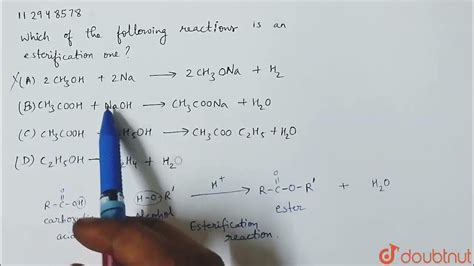 11 29 48578
Which of the following reactions is an
esterification one?
(A) 2CH3OH + 2Na → 2CH3ONa + H2
(B) CH3COOH + NaOH → CH3COONa + H2O
(C) CH3COOH H5OH → CH3COO C2H5 + H2O
(D) C2H5OH H4 + H2O
R-C-OH H-O-R' H+ → R-C-O-R' + H2O
O O
alcohol ester
acid Esterification
reaction.
doubtnut